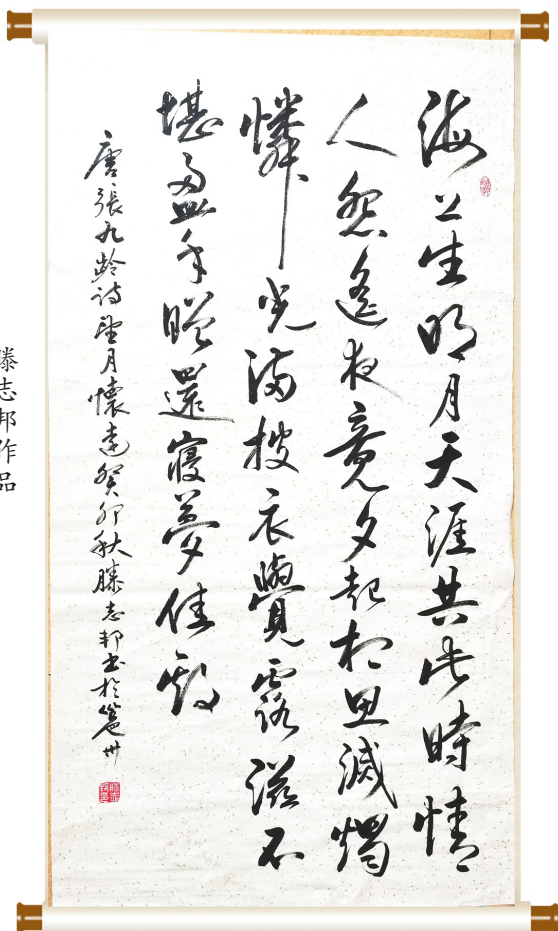 海上生明月天涯共此時情
人怨遙夜竟夕起相思滅燭
憐光滿披衣覺露滋不
堪盈手贈還寢夢佳期
唐張九齡詩望月懷遠癸卯秋滕志邦書於邕州
滕志邦作品